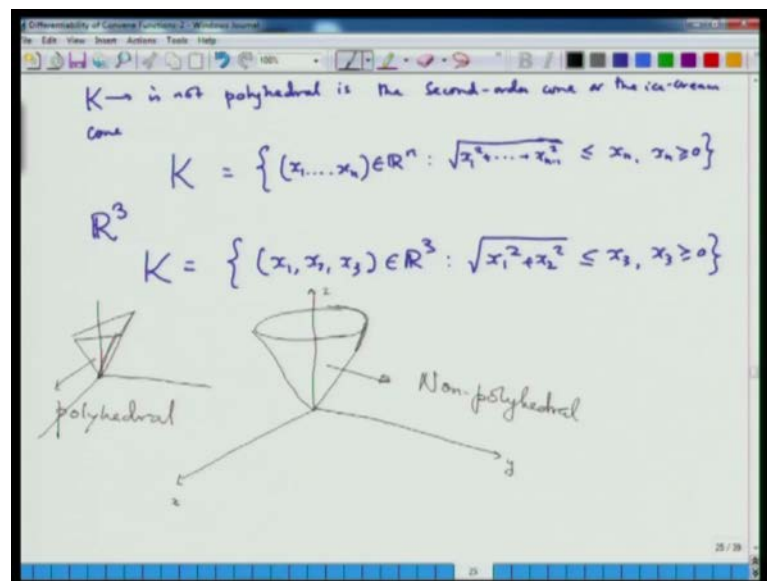 Differentiability of Convex Functions-2 - Windows Journal
File Edit View Insert Actions Tools Help
100%
K → is not polyhedral is the second-order cone or the ice-cream
cone
K = {(x₁....xₙ) ∈ ℝⁿ : √(x₁² + ··· + xₙ₋₁²) ≤ xₙ, xₙ ≥ 0}
ℝ³
K = {(x₁, x₂, x₃) ∈ ℝ³ : √(x₁² + x₂²) ≤ x₃, x₃ ≥ 0}
z
polyhedral
Non-polyhedral
y
x
25 / 39
25